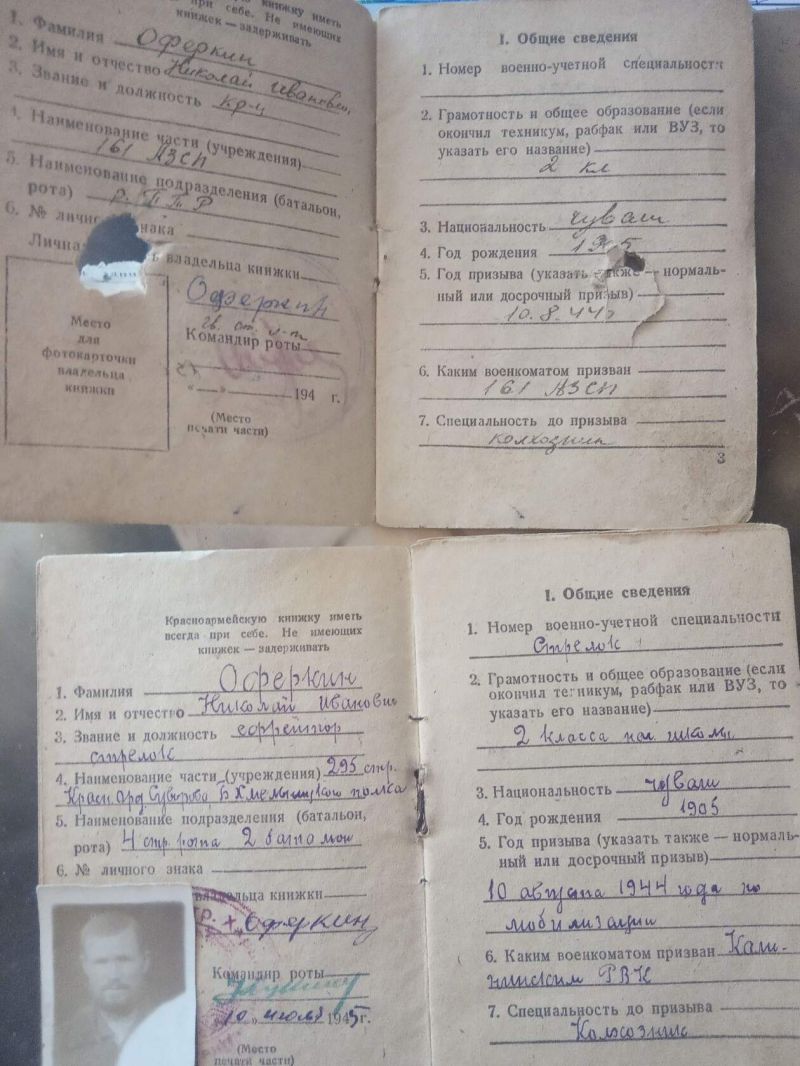 книжку иметь
при себе. Не имеющих
книжек — задерживать
1. Фамилия Оферкин
2. Имя и отчество Николай Иванович
3. Звание и должность кр-ц
4. Наименование части (учреждения)
161 АЗСП
5. Наименование подразделения (батальон,
рота) р. ПТР
6. № знака
владельца книжки
Оферкин
Место
для
фотокарточки
владельца
книжки
Командир роты
«__»__194 г.
(Место
печати части)
I. Общие сведения
1. Номер военно-учетной специальности
2. Грамотность и общее образование (если
окончил техникум, рабфак или ВУЗ, то
указать его название)
2 кл
3. Национальность чуваш
4. Год рождения
5. Год призыва (указать также — нормаль-
ный или досрочный призыв)
10.8.44г
6. Каким военкоматом призван
161 АЗСП
7. Специальность до призыва
колхозник
3
Красноармейскую книжку иметь
всегда при себе. Не имеющих
книжек — задерживать
1. Фамилия Оферкин
2. Имя и отчество Николай Иванович
3. Звание и должность ефрейтор
стрелок
4. Наименование части (учреждения) 295 стр.
Красн орд Суворова Б Хмельницкого полка
5. Наименование подразделения (батальон,
рота) 4 стр. рота 2 батальон
6. № личного знака
владельца книжки
Оферкин
Командир роты
"10" июля 1945г.
(Место
печати части)
I. Общие сведения
1. Номер военно-учетной специальности
Стрелок
2. Грамотность и общее образование (если
окончил техникум, рабфак или ВУЗ, то
указать его название)
2 класса нач школы
3. Национальность чуваш
4. Год рождения 1905
5. Год призыва (указать также — нормаль-
ный или досрочный призыв)
10 августа 1944 года по
мобилизации
6. Каким военкоматом призван Кали-
нинским РВК
7. Специальность до призыва
Колхозник